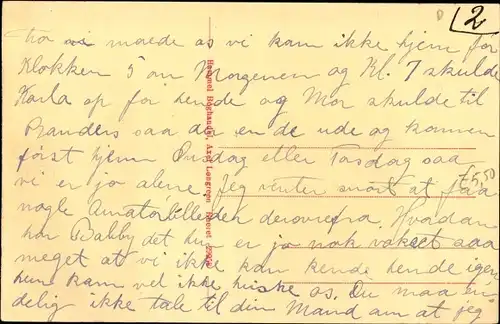 2
maede os vi kam ikke hjem før
Klokken 5 om Morgenen og Kl. 7 skulde
Karla op for hende og Mor skulde til
Randers saa da en de ude og kommer
først hjem Onsdag eller Torsdag saa
vi er jo alene. Jeg venter snart at faa
75,50
nogle Amatørbilleder derovrefra, Hvordan
har Babby det hun er jo nok vokset saa
meget at vi ikke kan kende hende igen
hun kam vel ikke huske os. Du maa en-
delig ikke tale til din Mand om at jeg
Rensonei Boghandel, Axel Langergs Eneret